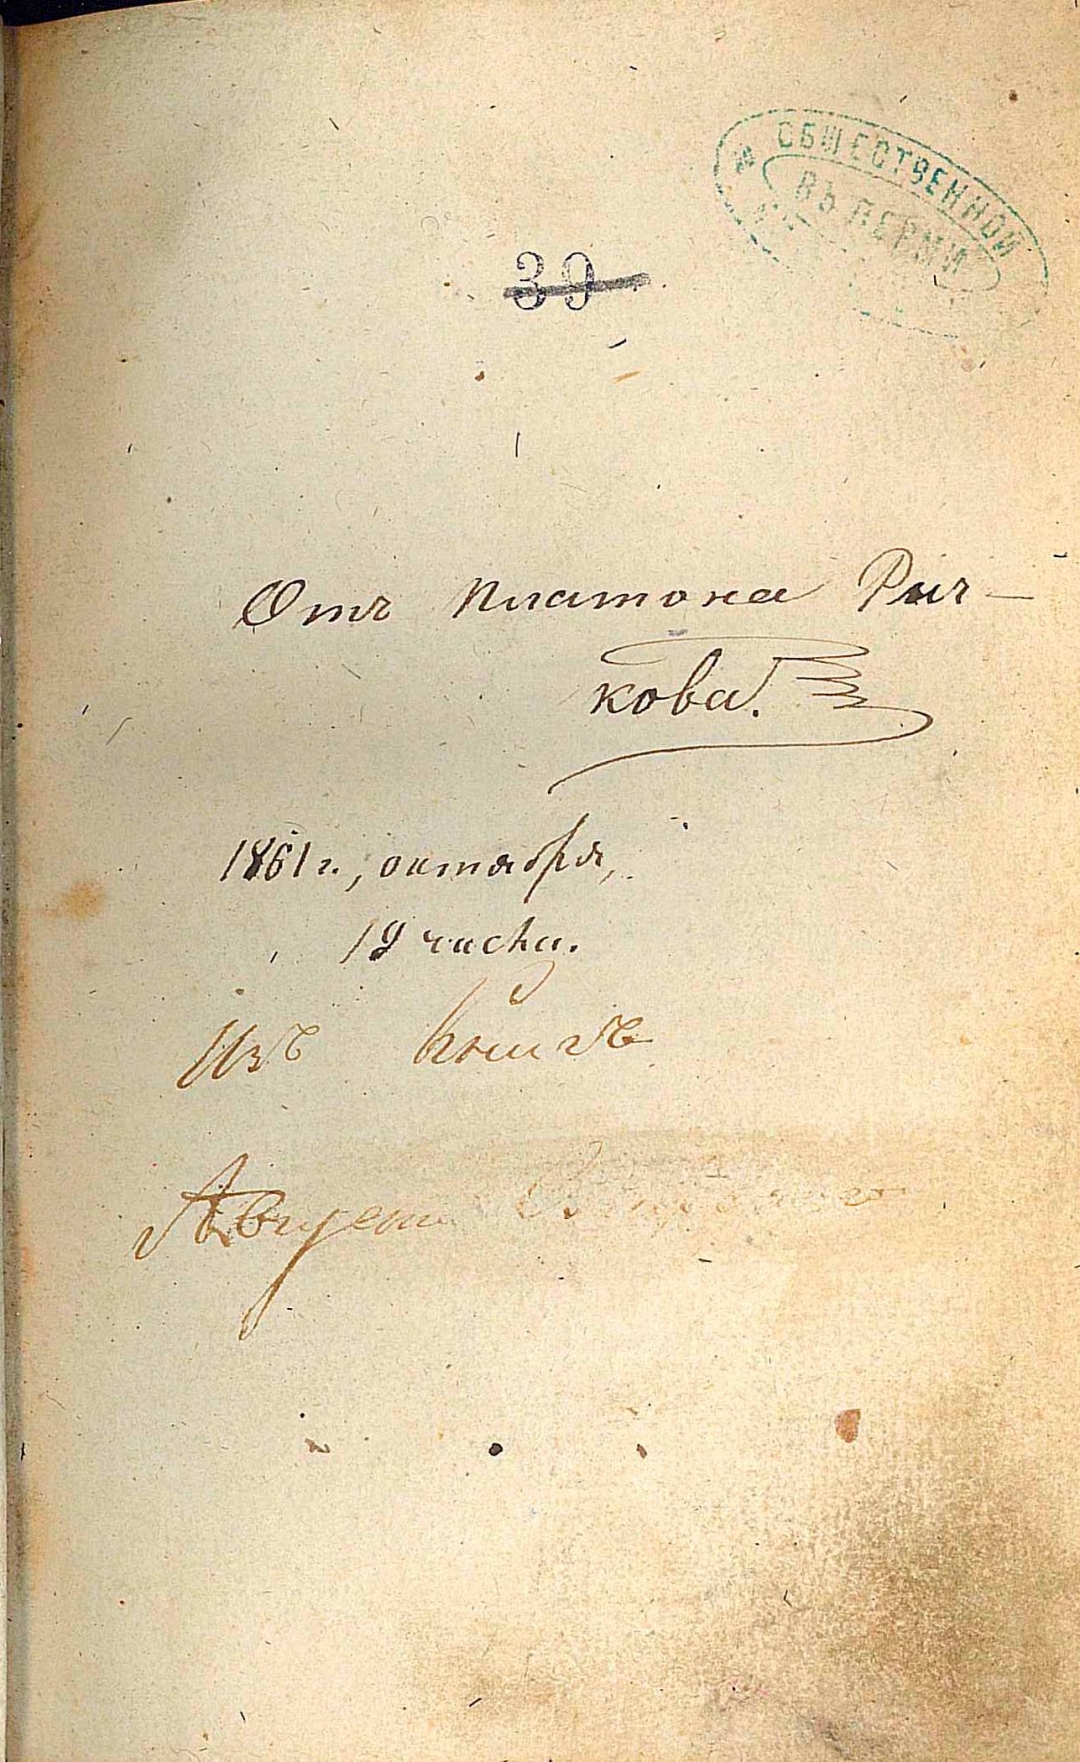 ОБЩЕСТВЕННОЙ
ВЪ ПЕРМИ
39
Отъ Платона Рыч-
кова.
1861 г., октября,
19 числа.
Изъ Книгъ
Август